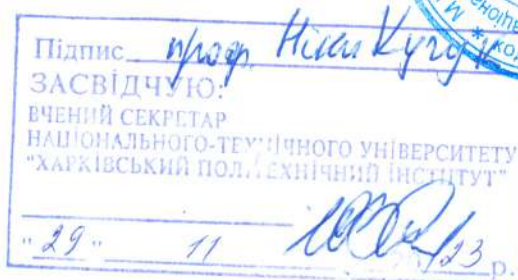 Підпис проф. Ніни Кучук
ЗАСВІДЧУЮ:
ВЧЕНИЙ СЕКРЕТАР
НАЦІОНАЛЬНОГО-ТЕХНІЧНОГО УНІВЕРСИТЕТУ
"ХАРКІВСЬКИЙ ПОЛІТЕХНІЧНИЙ ІНСТИТУТ"
"29" 11 2023 р.